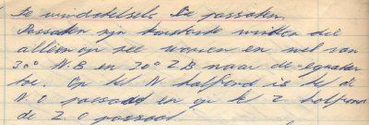 De windstelsels. De passaten.
Passaten zijn constante winden die
alleen op zee waaien en wel van
30° N.B en 30° Z B naar de equator
toe. Op het N halfrond is het de
N.O passaat en op het Z. halfrond
de Z O passaat